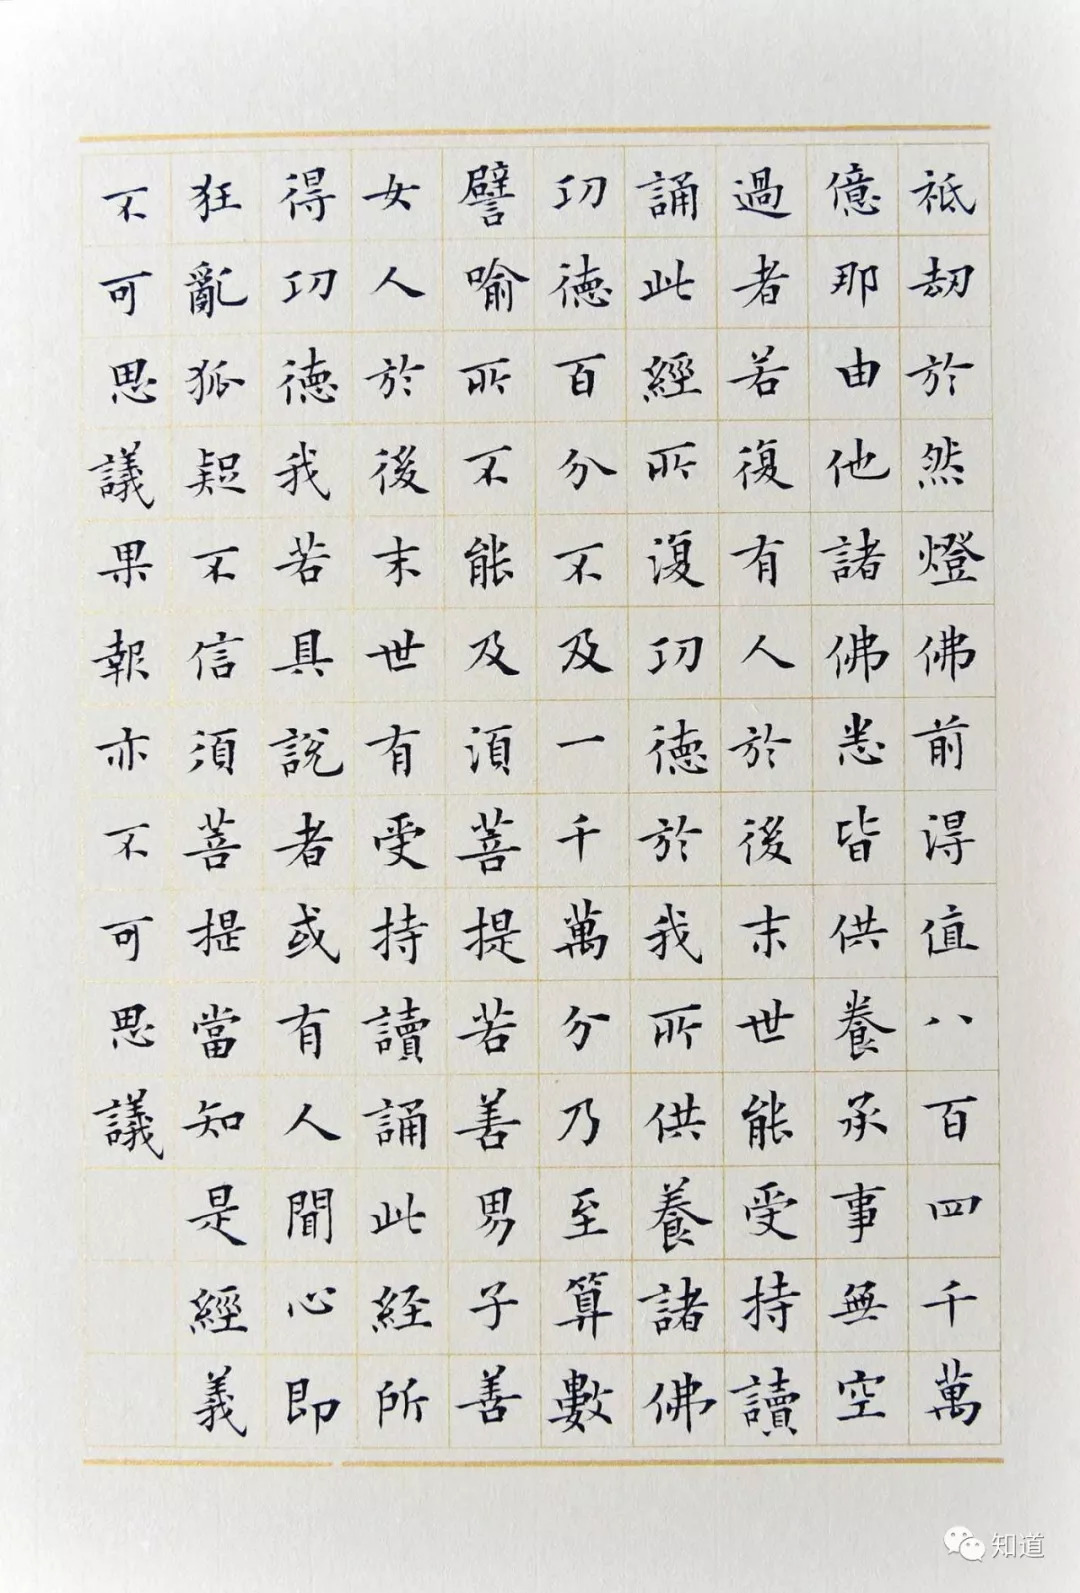 祇劫於然燈佛前得值八百四千萬
億那由他諸佛悉皆供養承事無空
過者若復有人於後末世能受持讀
誦此經所復功德於我所供養諸佛
功德百分不及一千萬分乃至算數
譬喻所不能及須菩提若善男子善
女人於後末世有受持讀誦此経所
得功德我若具說者或有人聞心即
狂亂狐疑不信須菩提當知是經義
不可思議果報亦不可思議
知道